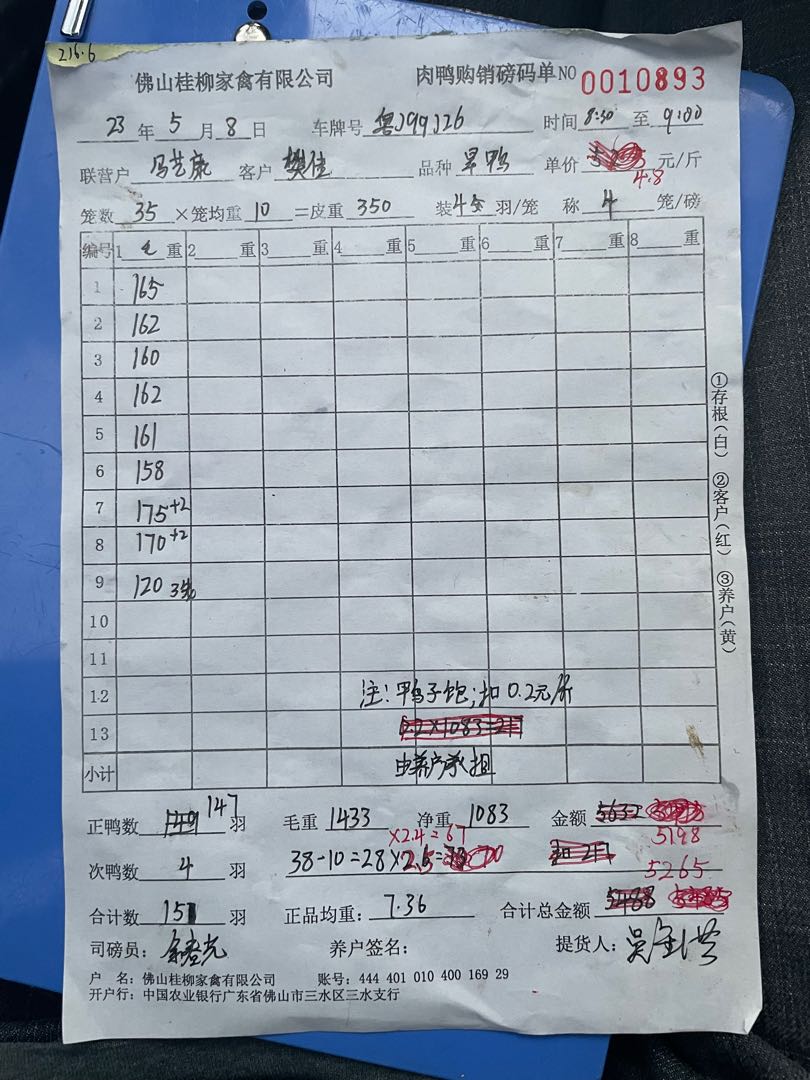 216.6
佛山桂柳家禽有限公司 肉鸭购销磅码单NO 0010893
23年5月8日 车牌号 粤J99J26 时间 8:30 至 9:00
联营户 冯艺康 客户 樊佳 品种 旱鸭 单价 元/斤
4.8
笼数 35 ×笼均重 10 =皮重 350 装 羽/笼 称 4 笼/磅
编号 1 重 2 重 3 重 4 重 5 重 6 重 7 重 8 重
1 165
2 162
3 160
4 162
5 161
6 158
7 175+2
8 170+2
9 120
10
11
12 注:鸭子饱;扣0.2元/斤
13
小计 由养户承担
①存根(白) ②客户(红) ③养户(黄)
正鸭数 147 羽 毛重 1433 净重 1083 金额 5632
×2.4=67 5198
次鸭数 4 羽 38-10=28
5265
合计数 151 羽 正品均重: 7.36 合计总金额
司磅员: 养户签名: 提货人:
户 名:佛山桂柳家禽有限公司 账号:444 401 010 400 169 29
开户行:中国农业银行广东省佛山市三水区三水支行